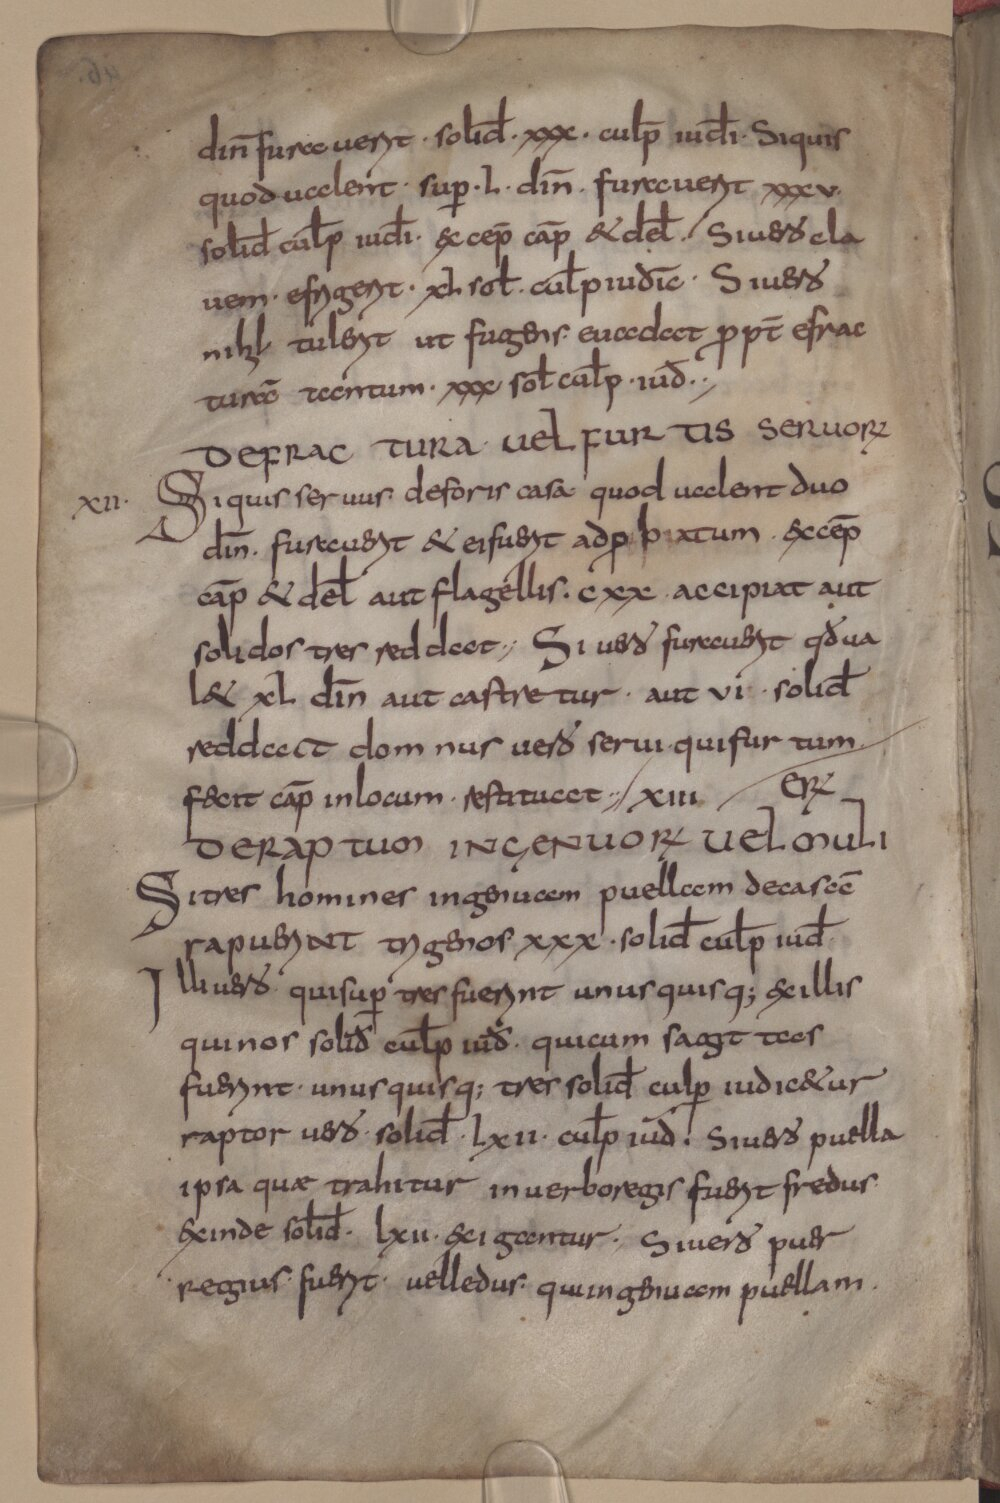 din̄ furauerit · solid̄ · xxx · culp̄ iud̄i · Si quis
quod ualent · sup̄ · L · din̄ · furauerit xxxv ·
solid̄ cul̄p iud̄i · excep̄ cap̄ & del̄ ·/ Si uero cla
uem · efrigerit · xL sol̄ · cul̄p iudic̄ · Si uero
nihil tulerit ut fugens euadat ꝓpt̄ efrac
turā tantum · xxx sol̄ cul̄p · iud̄ ·,
DEFRAC TURA UEL FURTIS SERUORꝝ
xii · Si quis seruus deforis casa quod ualent duo
din̄ · furauerit & ei fuerit adꝓbatum · excep̄
cap̄ & del̄ aut flagellis · cxx · accipiat aut
solidos tres reddat ·, Si uero furauerit qd̄ ua
l& xL din̄ aut castretur · aut vi · solid̄
reddact domnus uero serui qui furtum
fecit cap̄ in locum · restituaet ·,/ xiii erꝝ
DE RAPTUM INGENUORꝝ UEL MULI
Si tres homines ingenuam puellam de casa
rapuerint trigenos xxx · solid̄ cul̄p iud̄
Illi uero quisup̄ tres fuerint unusquisq; ex illis
quinos solid̄ cul̄p iud̄ · qui cum sagit tas
fuerint · unusquisq; tres solid̄ culp̄ iudic&ur
raptor uero solid̄ · Lxii · cul̄p iud̄ · Si uero puella
ipsa quæ trahitur in uerbo regis fuerit fredus
exinde solid̄ · Lxii · exigantur · Si uero puer
regius · fuerit · uel ledus · qui ingenuam puellam ·